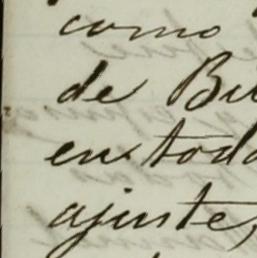 como
de Bu
en toda
ajuste,